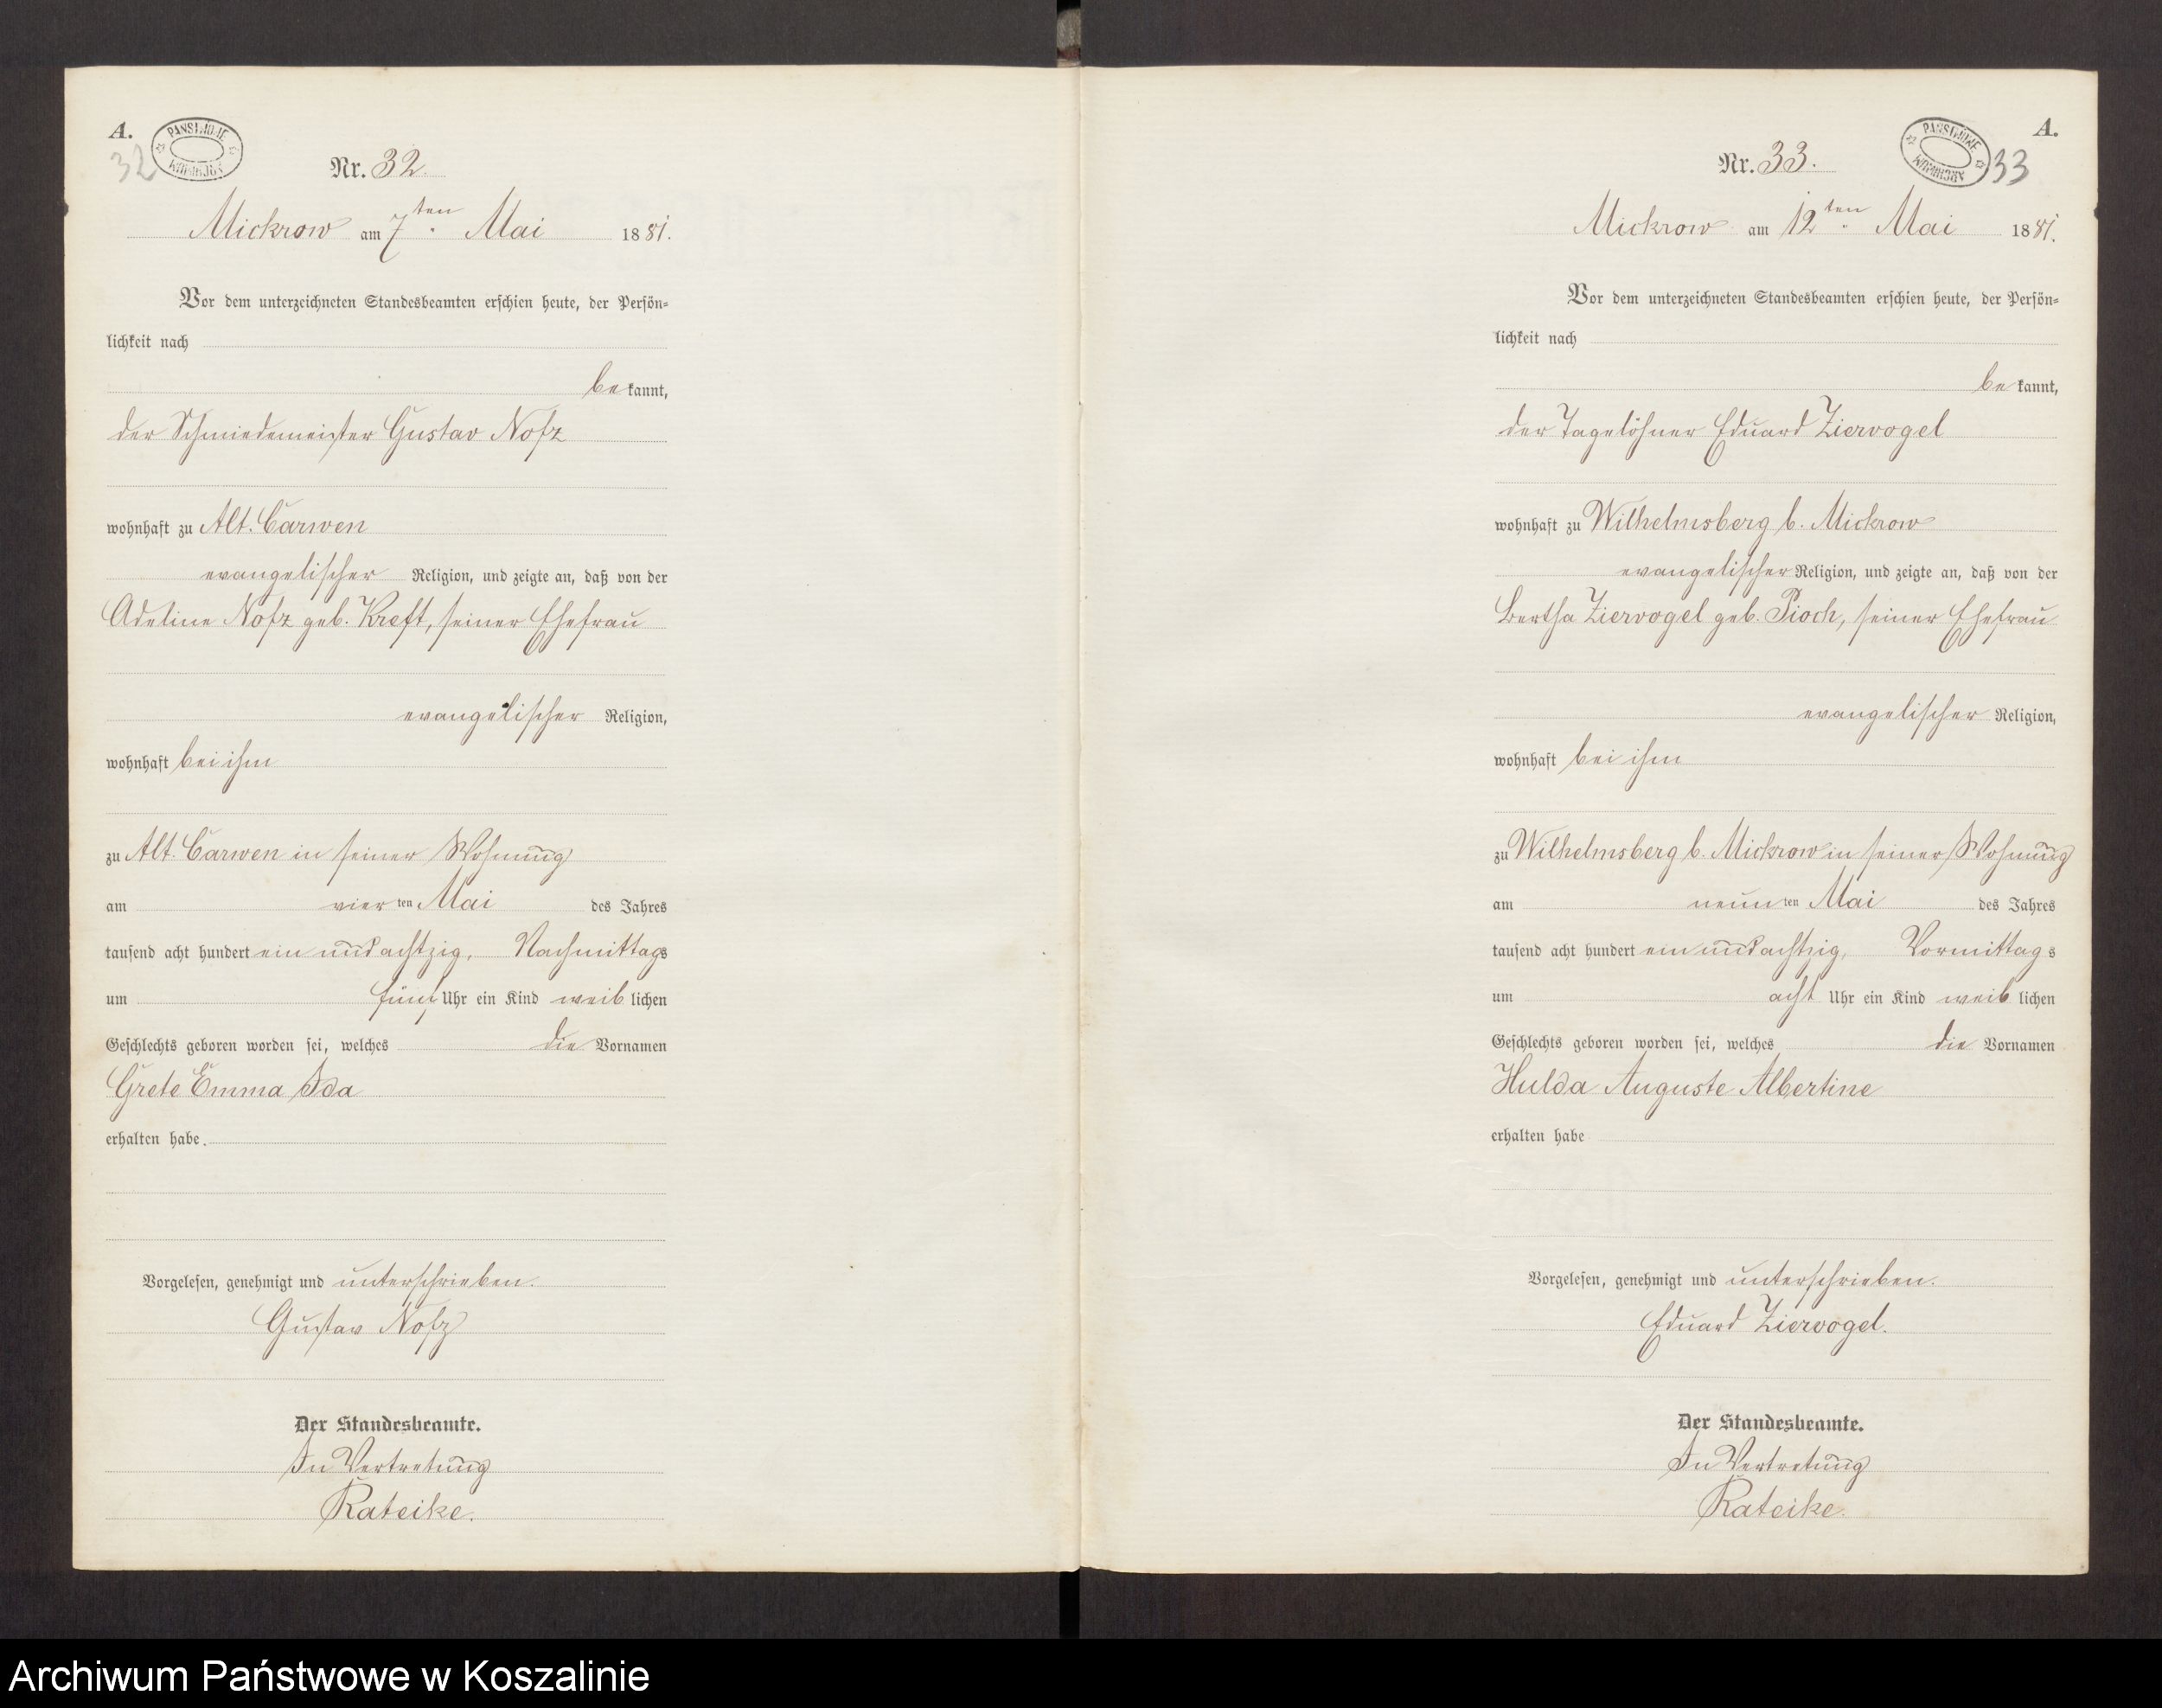 A.
PAŃSTWOWE
ARCHIWUM
32
Nr. 32.
Mickrow am 7ten Mai 1881.
Vor dem unterzeichneten Standesbeamten erschien heute, der Persön=
lichkeit nach
be kannt,
der Schmiedemeister Gustav Nofz
wohnhaft zu Alt. Carwen
evangelischer Religion, und zeigte an, daß von der
Adeline Nofz geb. Kreft, seiner Ehefrau
evangelischer Religion,
wohnhaft bei ihm
zu Alt. Carwen in seiner Wohnung
am vier ten Mai des Jahres
tausend acht hundert ein und achtzig, Nachmittags
um fünf Uhr ein Kind weib lichen
Geschlechts geboren worden sei, welches die Vornamen
Grete Emma Ida
erhalten habe.
Vorgelesen, genehmigt und unterschrieben.
Gustav Nofz
Der Standesbeamte.
In Vertretung
Rateike.
A.
PAŃSTWOWE
ARCHIWUM
33
Nr. 33.
Mickrow am 12ten Mai 1881.
Vor dem unterzeichneten Standesbeamten erschien heute, der Persön=
lichkeit nach
be kannt,
der Tagelöhner Eduard Ziervogel
wohnhaft zu Wilhelmsberg b. Mickrow
evangelischer Religion, und zeigte an, daß von der
Bertha Ziervogel geb. Pioch, seiner Ehefrau
evangelischer Religion,
wohnhaft bei ihm
zu Wilhelmsberg b. Mickrow in seiner Wohnung
am neun ten Mai des Jahres
tausend acht hundert ein und achtzig, Vormittag s
um acht Uhr ein Kind weib lichen
Geschlechts geboren worden sei, welches die Vornamen
Hulda Auguste Albertine
erhalten habe
Vorgelesen, genehmigt und unterschrieben.
Eduard Ziervogel.
Der Standesbeamte.
In Vertretung
Rateike.
Archiwum Państwowe w Koszalinie